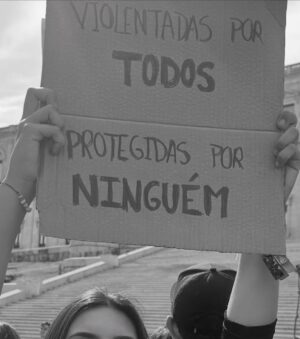 VIOLENTADAS POR
TODOS
PROTEGIDAS POR
NINGUÉM